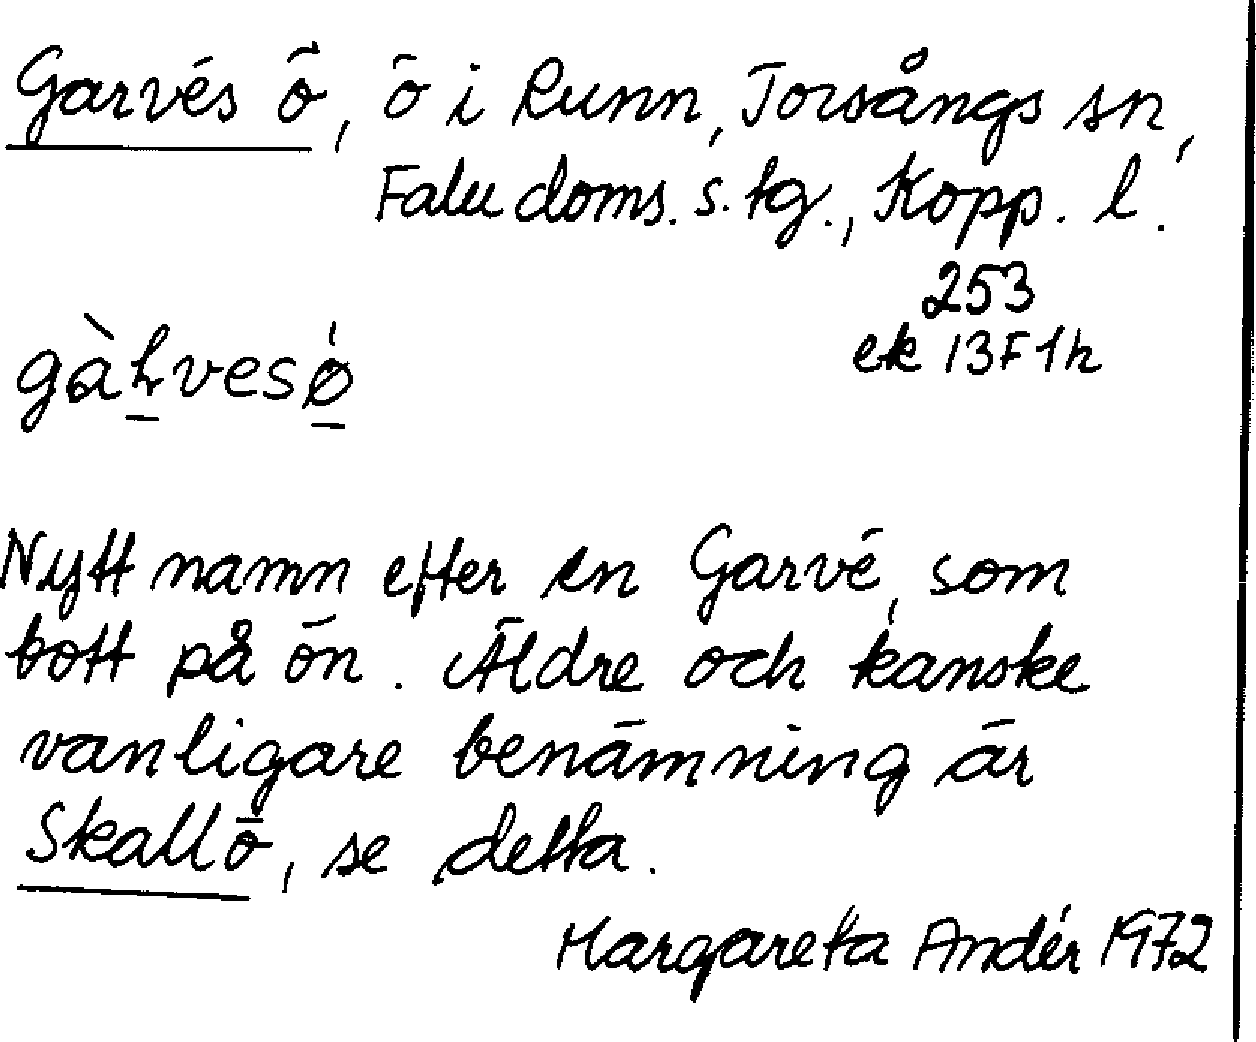 Garvés ö, ö i Runn, Torsångs sn,
Falu doms. s. tg., Kopp. l.
253
ek 13F1h
gàrvesǿ
Nytt namn efter en Garvé, som
bott på ön. Äldre och kanske
vanligare benämning är
Skallö, se detta.
Margareta Andér 1972